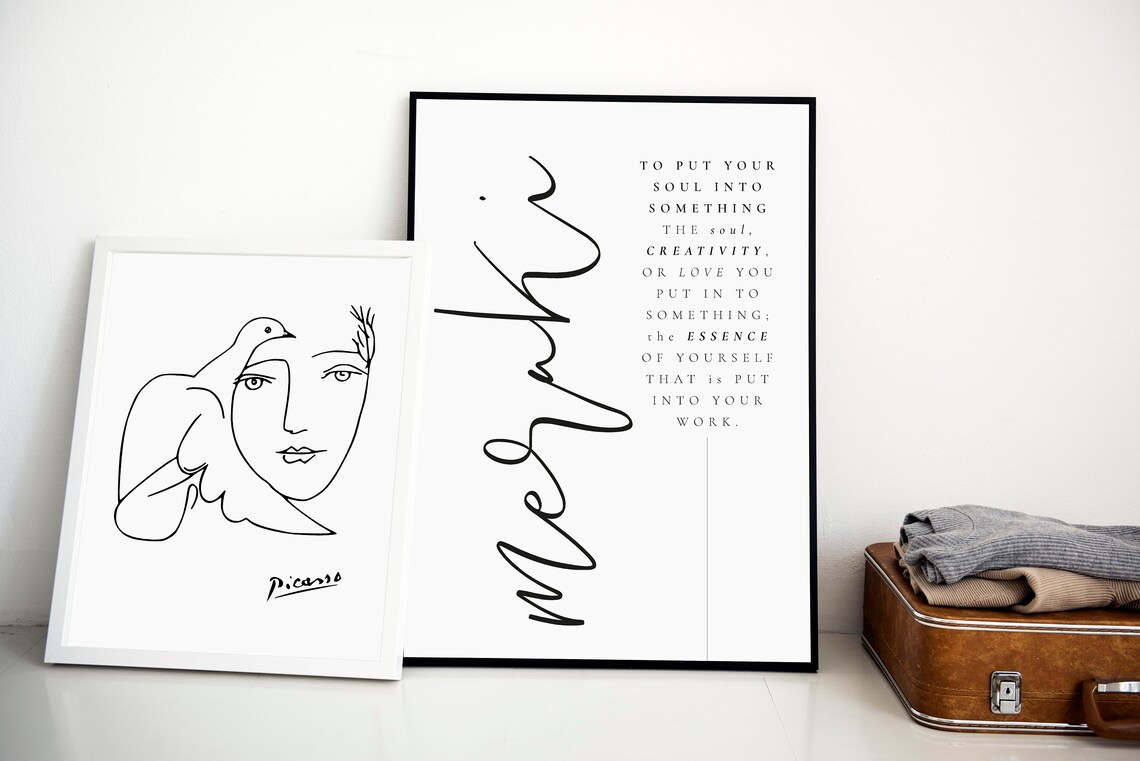 Picasso
meraki
TO PUT YOUR
SOUL INTO
SOMETHING
THE soul,
CREATIVITY,
OR LOVE YOU
PUT IN TO
SOMETHING;
the ESSENCE
OF YOURSELF
THAT is PUT
INTO YOUR
WORK.